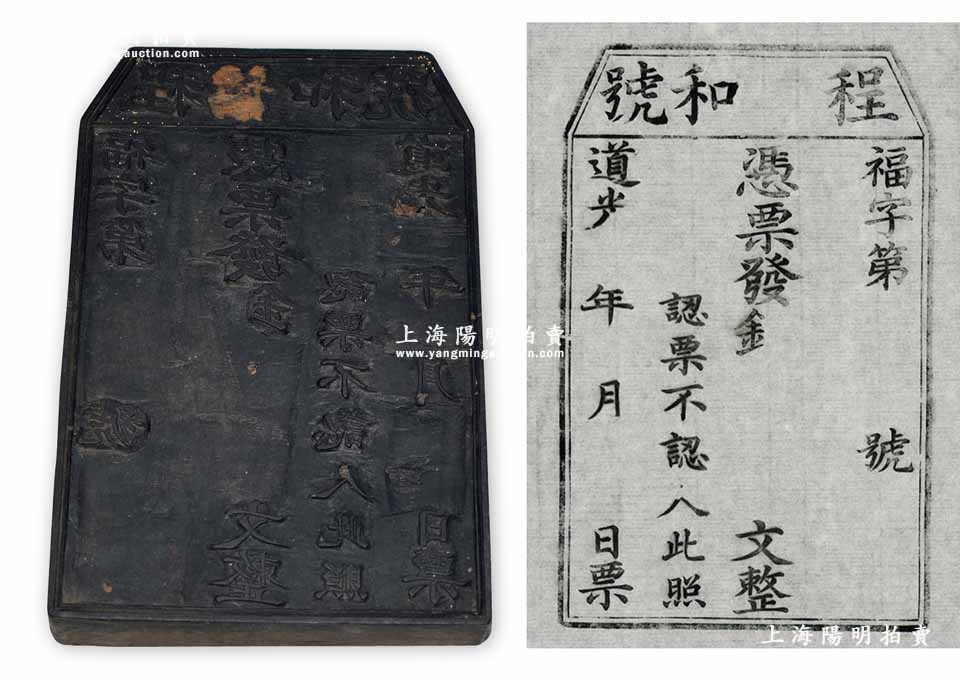 程 和號
福字第 號
憑票發 文整
認票不認人此照
道 年 月 日票
上海陽明拍賣
www.yangmingauction.com
上海陽明拍賣